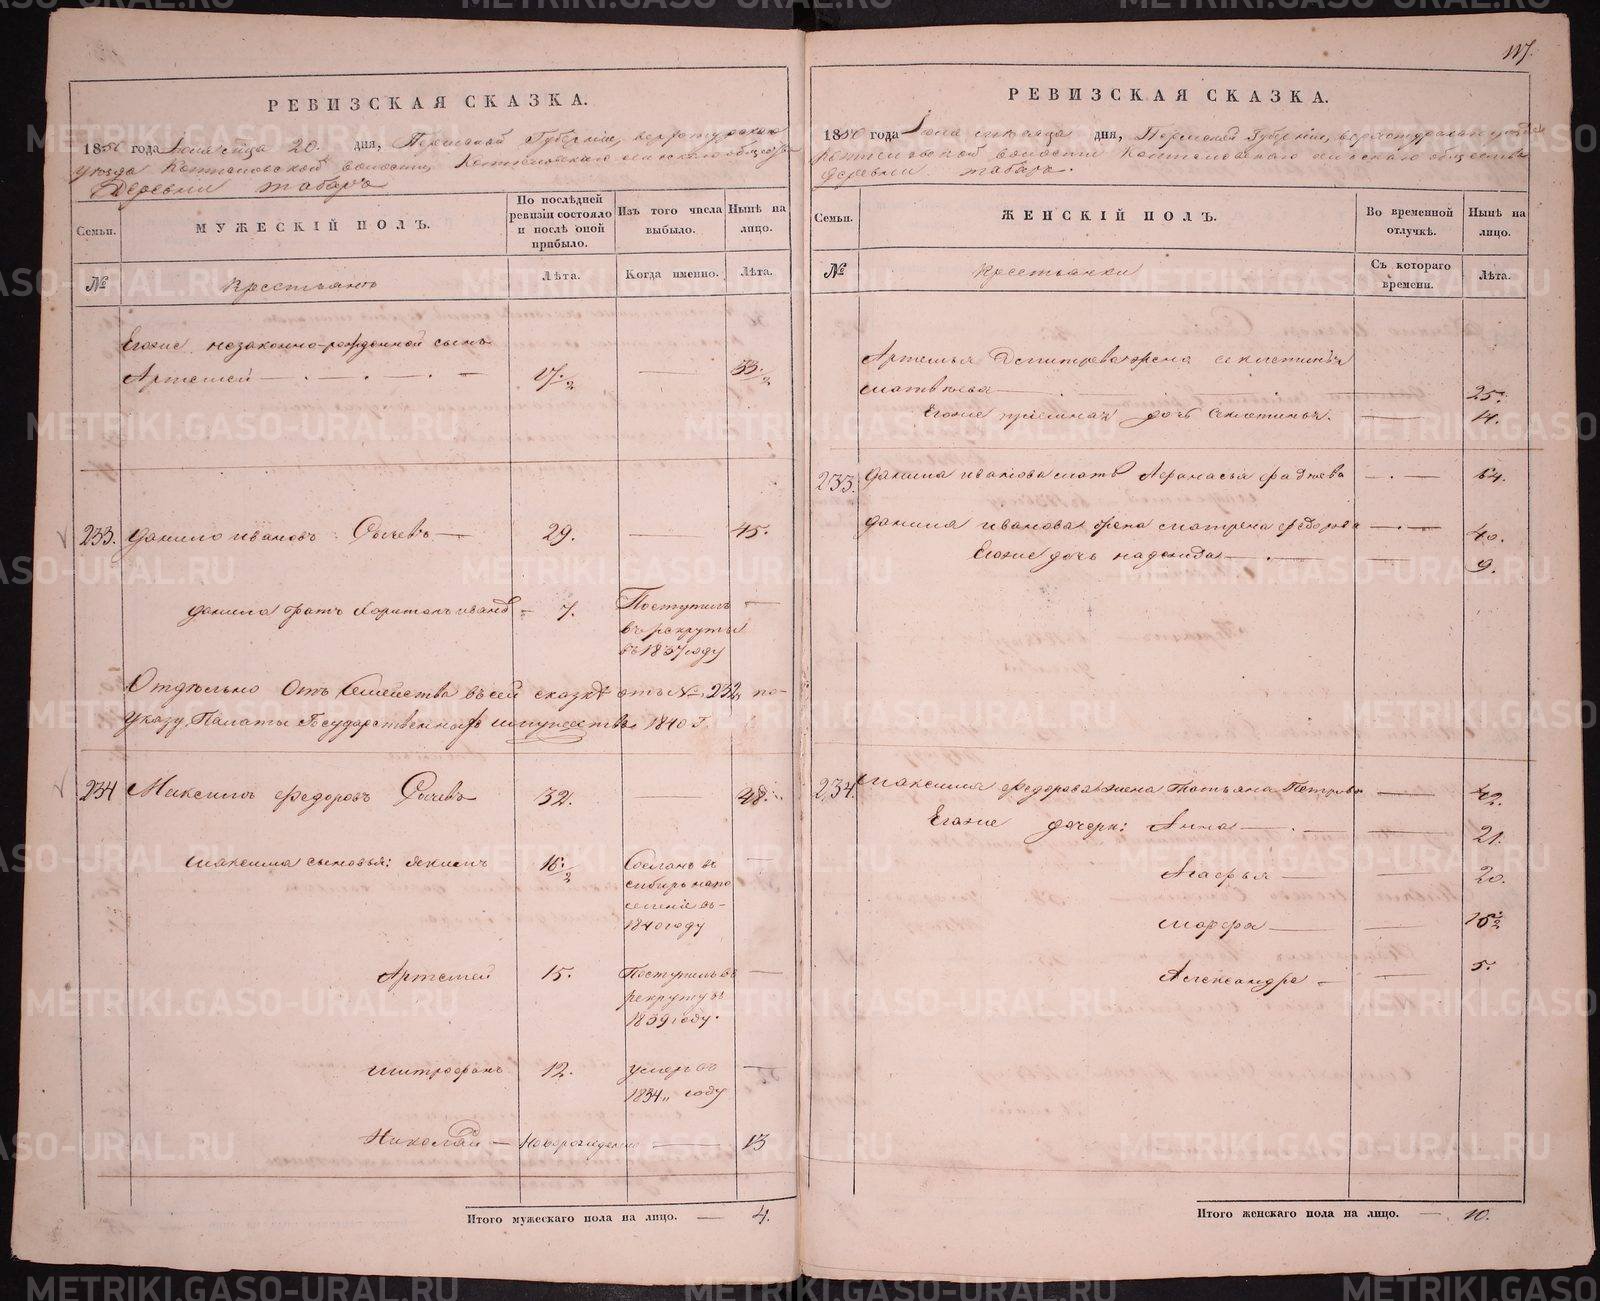 117.
РЕВИЗСКАЯ СКАЗКА.
1850 года Іюля сіца 20. дня, Пермской Губерніи, верхотурскаго
уезда Коптеловской волости, Коптеловскаго сельскаго общества
Деревни Таборъ
Семьи.
МУЖЕСКІЙ ПОЛЪ.
По послѣдней ревизіи состояло и послѣ оной прибыло.
Изъ того числа выбыло.
Нынѣ на лицо.
№
Крестьянъ
Лѣта.
Когда именно.
Лѣта.
Егоже незаконно-рожденной сынъ
Артемей 17/2 33/2
233. Данило Ивановъ Сычевъ 29. 45.
Данила братъ Харитонъ Иванов 7. Поступилъ
въ рекруты
въ 1837 году
Отдѣльно Отъ Семейства въ сей сказкѣ отъ № 232, по
Указу Палаты Государственныхъ имуществъ 1840 г.
234 Максимъ Федоровъ Сычевъ 32. 48.
Максима сыновья: Якимъ 16/2 Сосланъ въ
сибирь на по
селеніе въ
1840 году
Артемей 15. Поступилъ въ
рекруты въ
1839 году.
Митрофанъ 12. умеръ въ
1834 году
Николай Новорожденно 13
Итого мужескаго пола на лицо. 4.
РЕВИЗСКАЯ СКАЗКА.
1850 года Іюля дня, Пермской Губерніи, верхотурскаго уезда
Коптеловской волости Коптеловскаго сельскаго общества
Деревни Таборъ.
Семьи.
ЖЕНСКІЙ ПОЛЪ.
Во временной отлучкѣ.
Нынѣ на лицо.
№
Крестьянки
Съ котораго времени.
Лѣта.
Артемья жена
Матвѣева 25.
Егоже дочь 14.
233. Данила Иванова мать Афанасья Фадѣева 64.
Данила Иванова жена Матрена Федорова 40.
Егоже дочь Надежда 9.
234. Максима Федорова жена Татьяна Петрова 42.
Егоже дочери: Анна 21.
Агафья 20.
Марфа 15/2
Александра 5.
Итого женскаго пола на лицо. 10.
METRIKI.GASO-URAL.RU